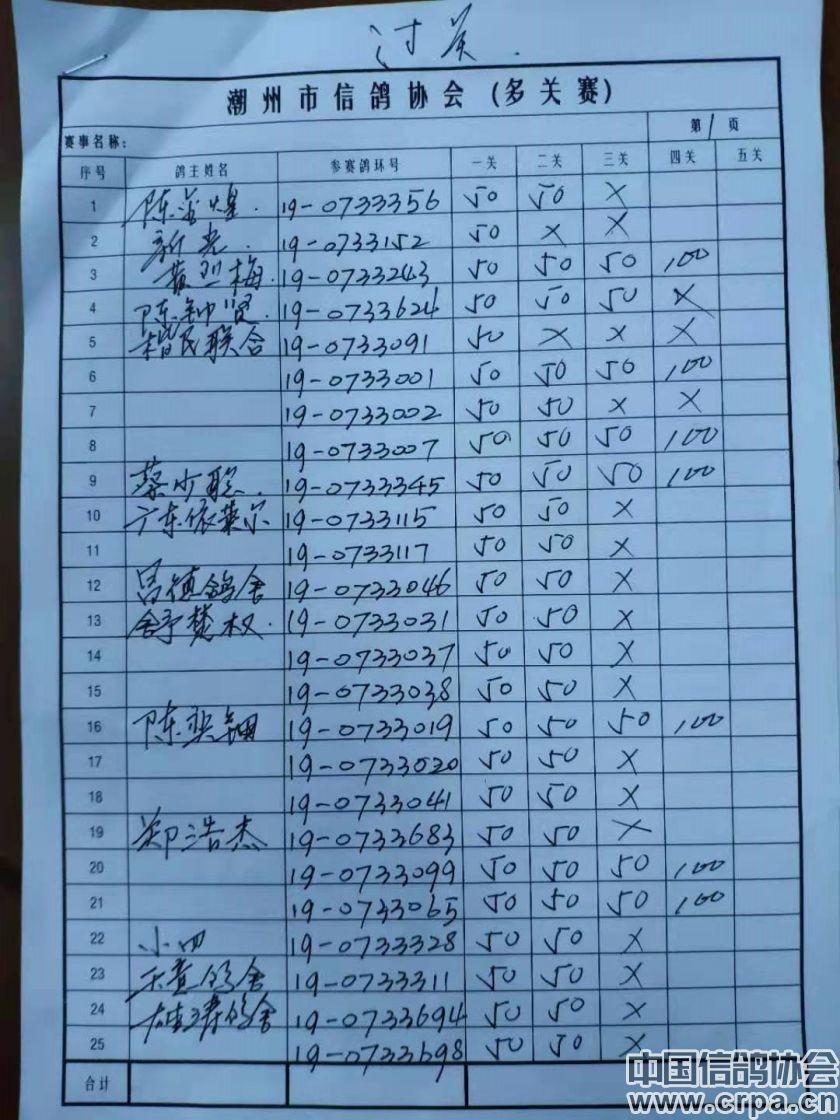 过关.
潮州市信鸽协会(多关赛)
赛事名称: 第1页
序号 鸽主姓名 参赛鸽环号 一关 二关 三关 四关 五关
1 陈 煌. 19-0733356 50 50 X
2 新光. 19-0733152 50 X X
3 黄烈梅. 19-0733243 50 50 50 100
4 陈钟贤. 19-0733624 50 50 50 X
5 楷民联合 19-0733091 50 X X X
6 19-0733001 50 50 50 100
7 19-0733002 50 50 X X
8 19-0733007 50 50 50 100
9 蔡少聪. 19-0733345 50 50 50 100
10 广东依莱尔 19-0733115 50 50 X
11 19-0733117 50 50 X
12 吕镇鸽舍 19-0733046 50 50 X
13 舒楚权. 19-0733031 50 50 X
14 19-0733037 50 50 X
15 19-0733038 50 50 X
16 陈奕钿 19-0733019 50 50 50 100
17 19-0733020 50 50 X
18 19-0733041 50 50 X
19 郑浩杰 19-0733683 50 50 X
20 19-0733099 50 50 50 100
21 19-0733065 50 50 50 100
22 小四 19-0733328 50 50 X
23 鸽舍 19-0733311 50 50 X
24 鸽舍 19-0733694 50 50 X
25 19-0733698 50 50 X
合计
中国信鸽协会
www.crpa.cn